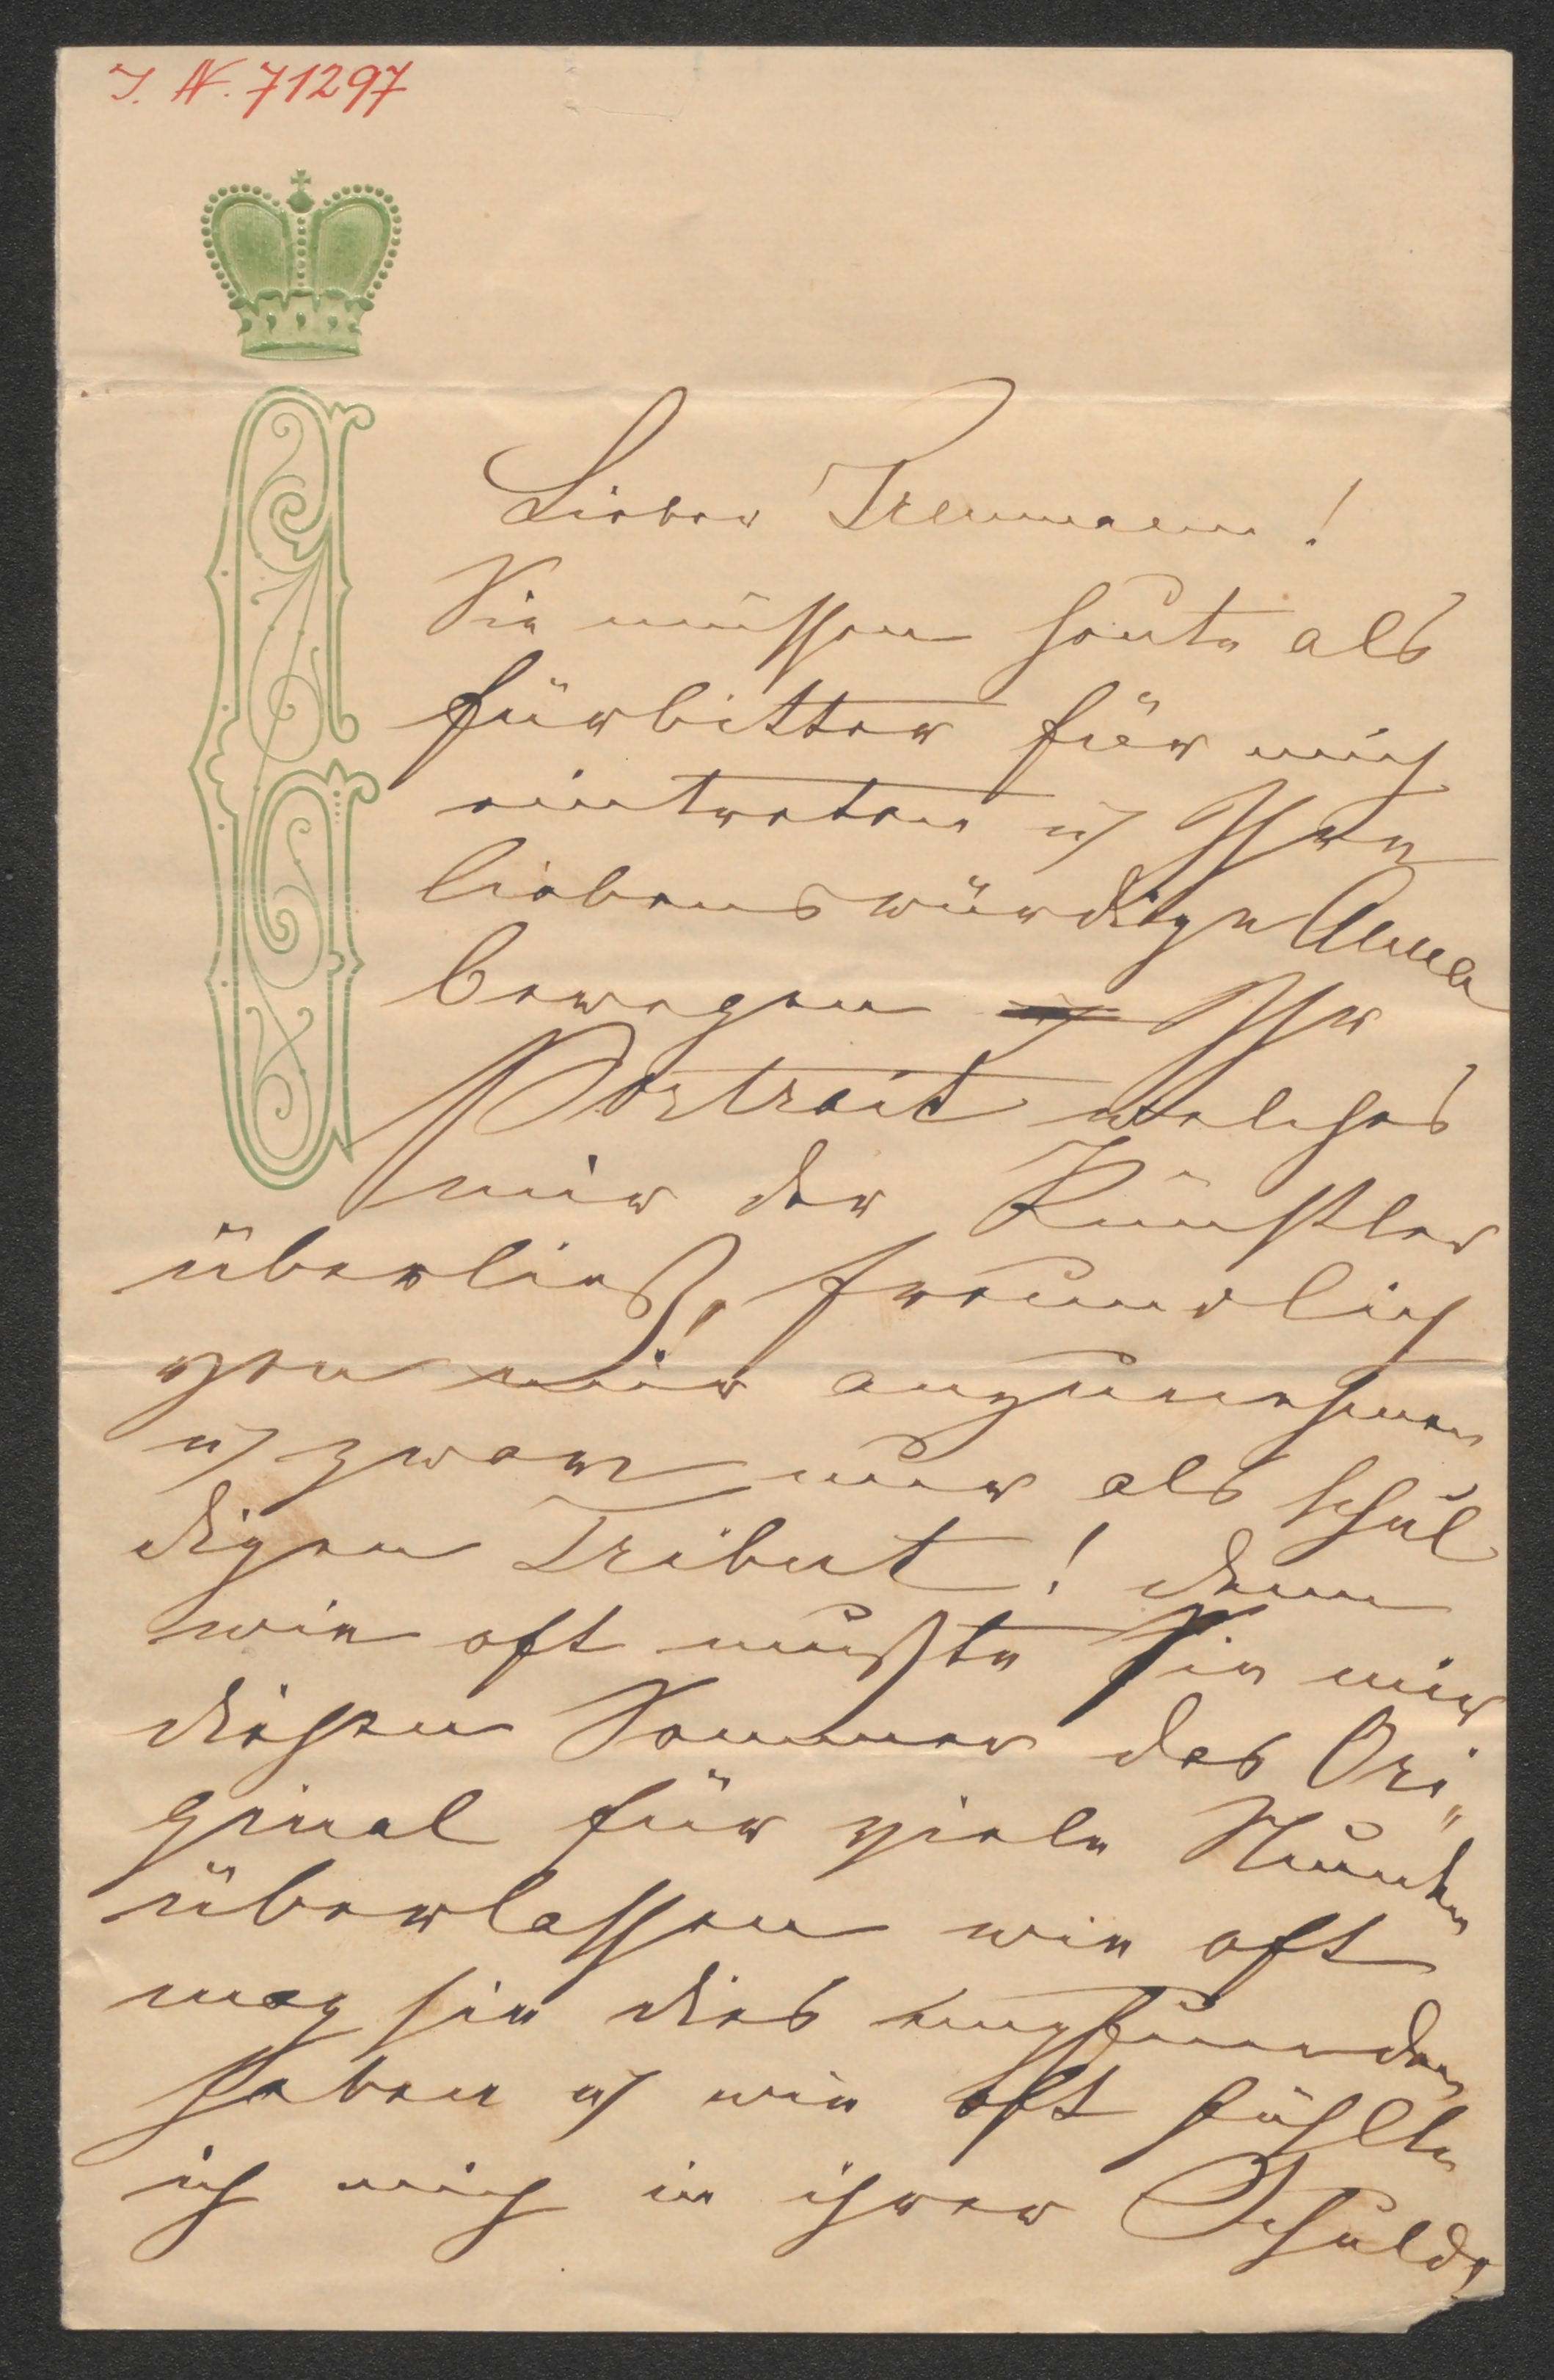 I. N. 71297
Lieber Treumann!
Sie müssen heute als
Fürbitter für mich
eintreten u Ihre
liebenswürdige Anna
bewegen Ihr
Portrait welches
mir der Künstler
überließ, freundlich
von mir anzunehmen
u zwar nur als schul
digen Tribut! denn
wie oft mußte sie mir
diesen Sommer das Ori„
ginal für viele Stunden
überlassen wie oft
mag sie dies empfunden
haben u wie oft fühlte
ich mich in ihrer Schuld,